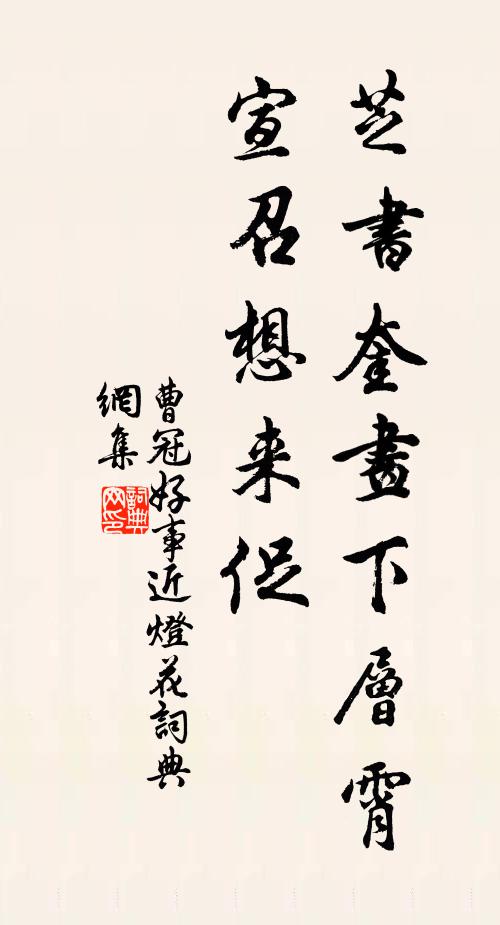 芝書奎畫下層霄
宣召想来促
曹冠好事近燈花詞典
網集
詞典
网印